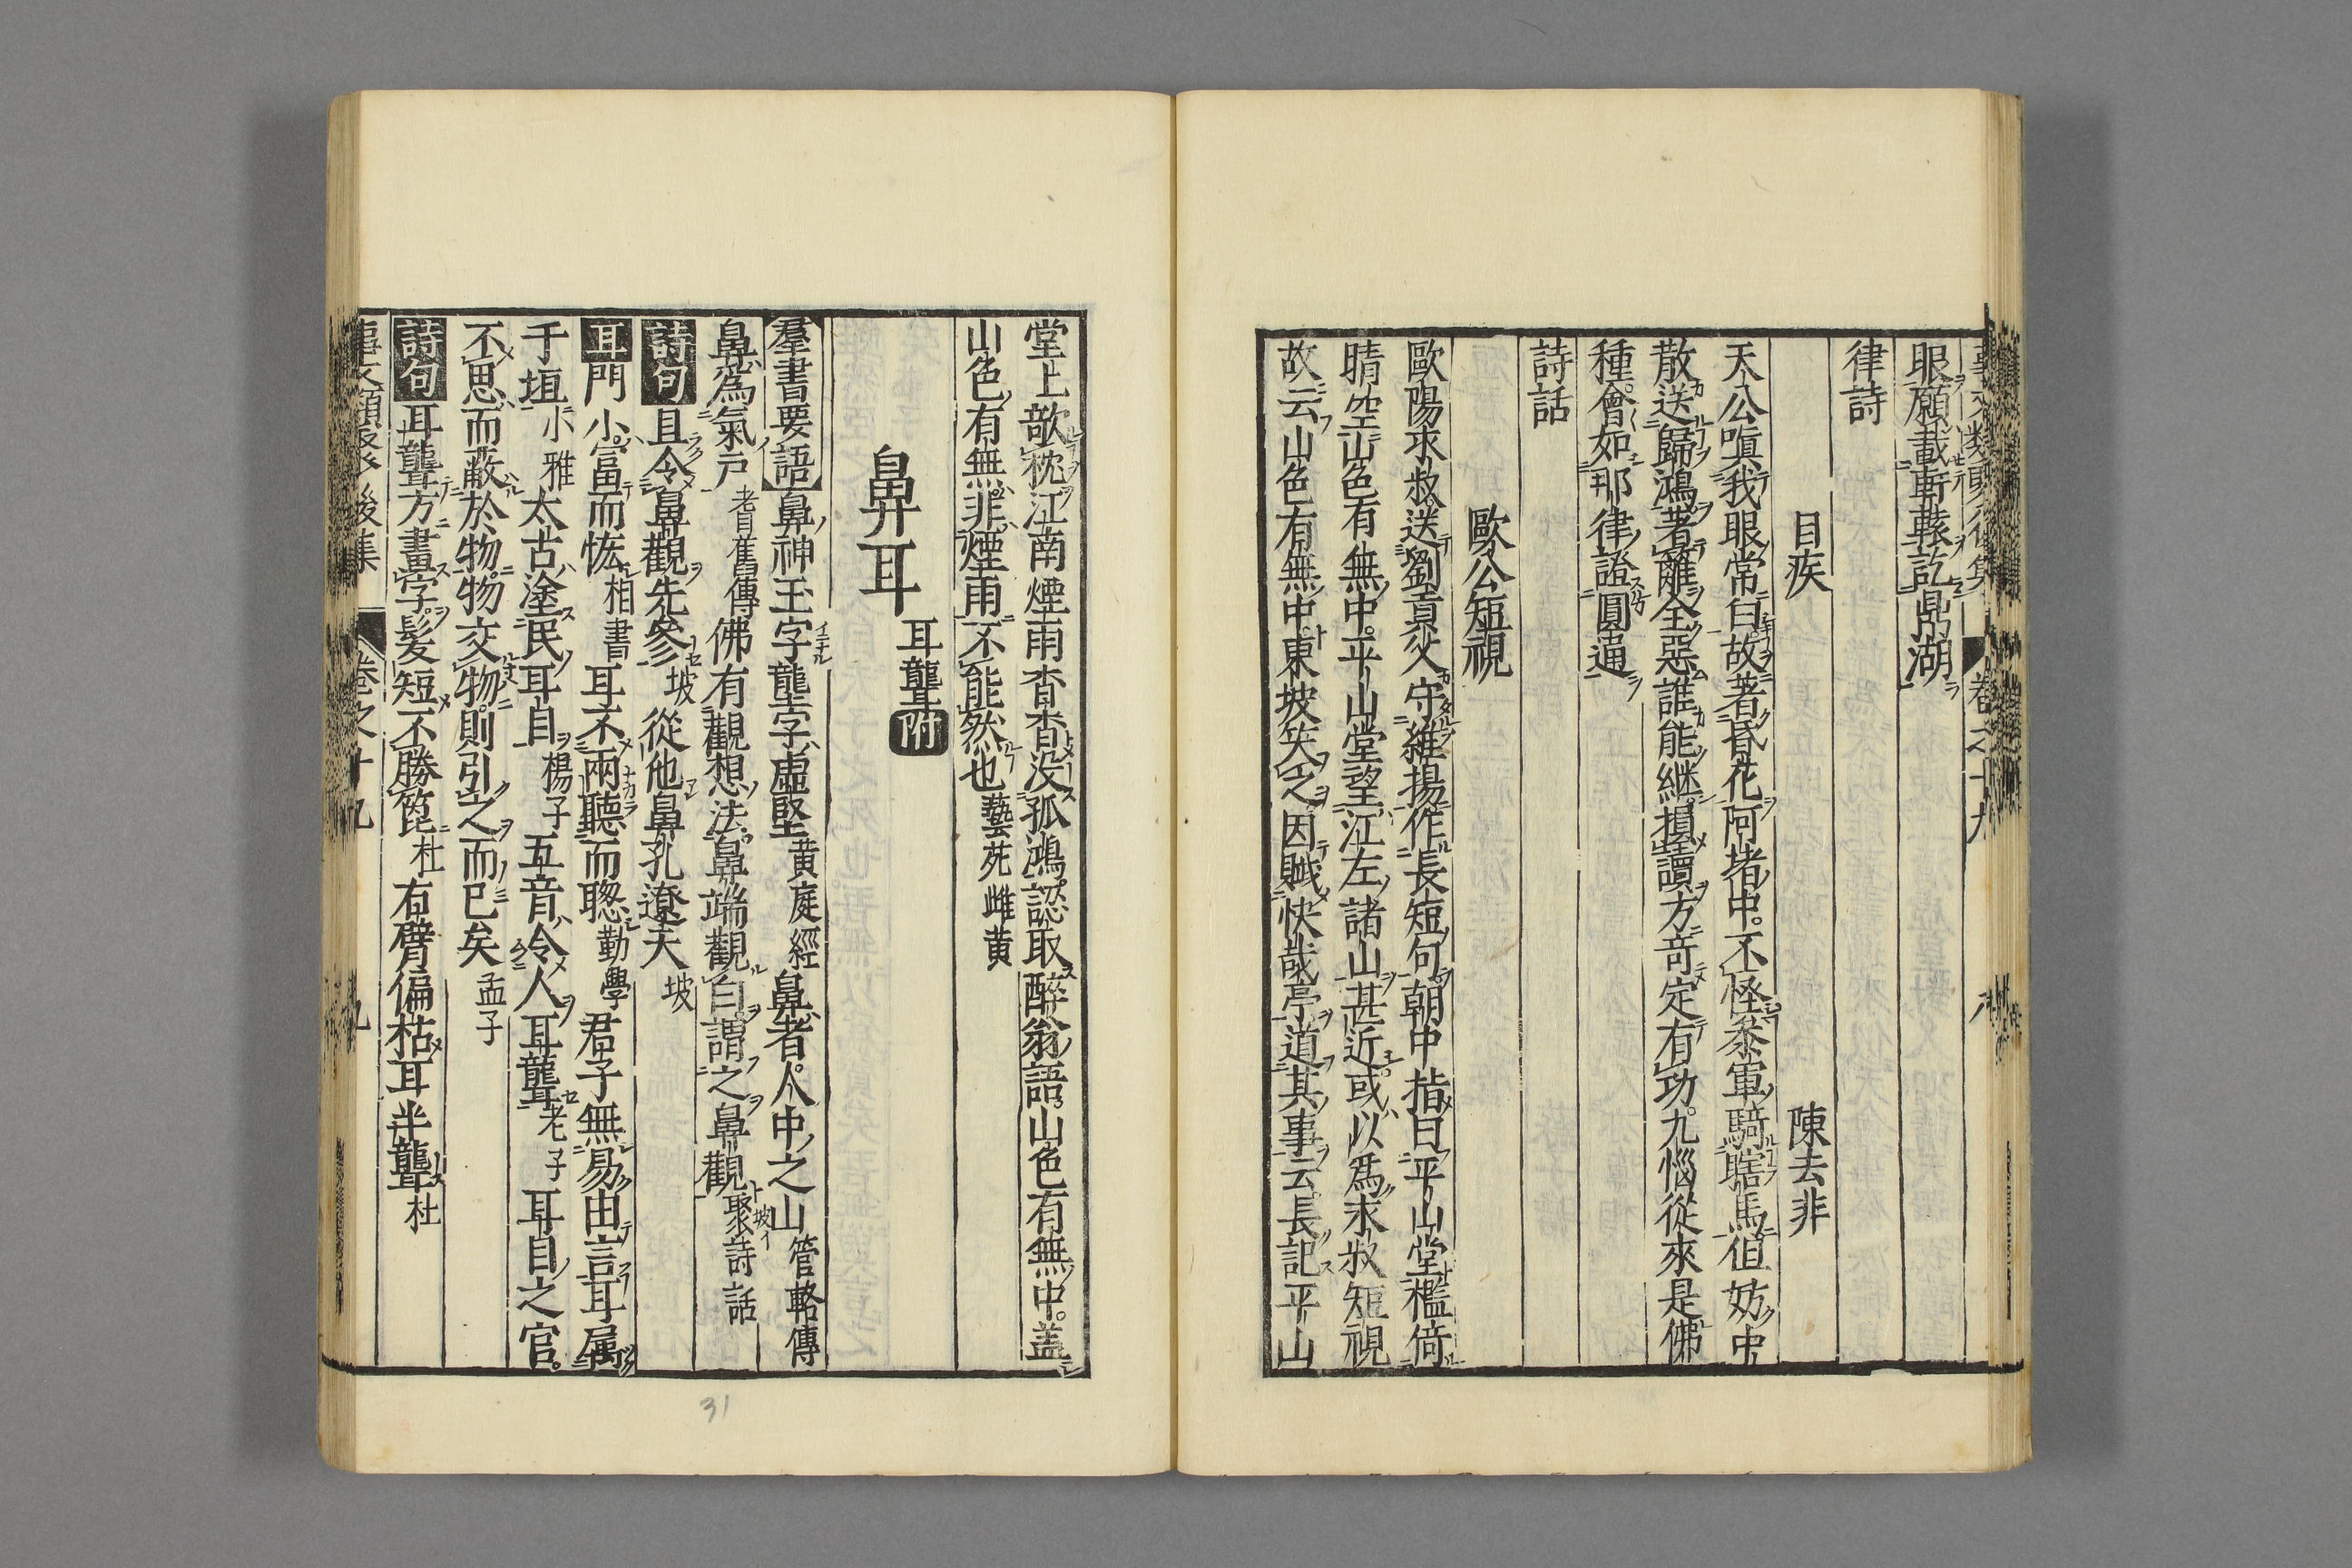 眼願載斬轅訖鼎湖
律詩
目疾 陳去非
天公嗔我眼常白故著昏花阿堵中不怪參軍騎瞎馬但妨中
散送歸鴻著籬全惡誰能継損讀方竒定有功九惱從來是佛
種會如那律證圓通
詩話
歐公短視
歐陽求叔送劉貢父守維揚作長短句朝中措曰平山堂檻倚
晴空山色有無中平山堂望江左諸山甚近或以爲求叔短視
故云山色有無中東坡笑之因賦快哉亭道其事云長記平山
堂上欹枕江南煙雨杳杳没孤鴻認取醉翁語山色有無中盖
山色有無非煙雨不能然也藝苑雌黄
鼻耳 耳聾附
羣書要語鼻神玉字龍字虚堅黄庭經鼻者人中之山管輅傳
鼻爲氣戸耆舊傳佛有觀想法鼻端觀白謂之鼻觀坡聚詩話
詩句且令鼻觀先參坡從他鼻孔遼天坡
耳門小富而恢相書耳不兩聽而聦勤學君子無易由言耳属
于垣小雅太古塗民耳目楊子五音令人耳聾老子耳目之官
不思而蔽於物物交物則引之而已矣孟子
詩句耳聾方畫字髮短不勝篦杜右臂偏枯耳半聾杜
事文類聚後集 卷之十九 九